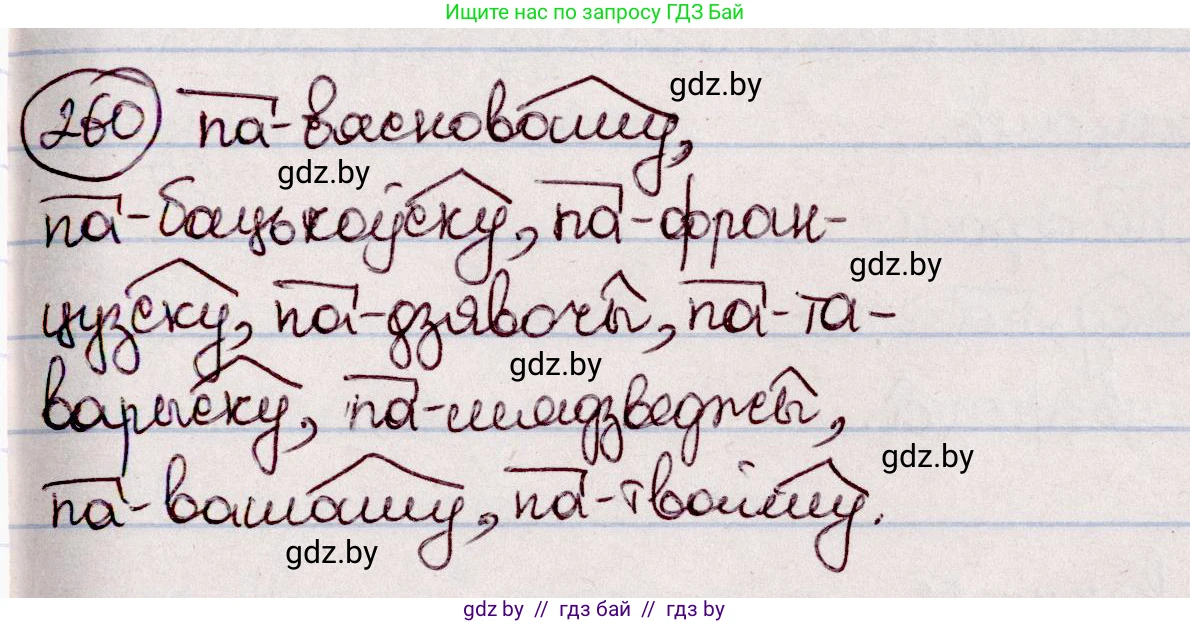 Ищите нас по запросу ГДЗ Бай
260 па-васковаму, gdz.by
gdz.by
па-бацькоўску, па-фран-
gdz.by
цузску, па-дзявочы, па-та-
gdz.by
варыску, па-мядзведжы,
gdz.by
па-вашаму, па-твайму.
gdz.by
gdz.by // гдз бай // гдз by